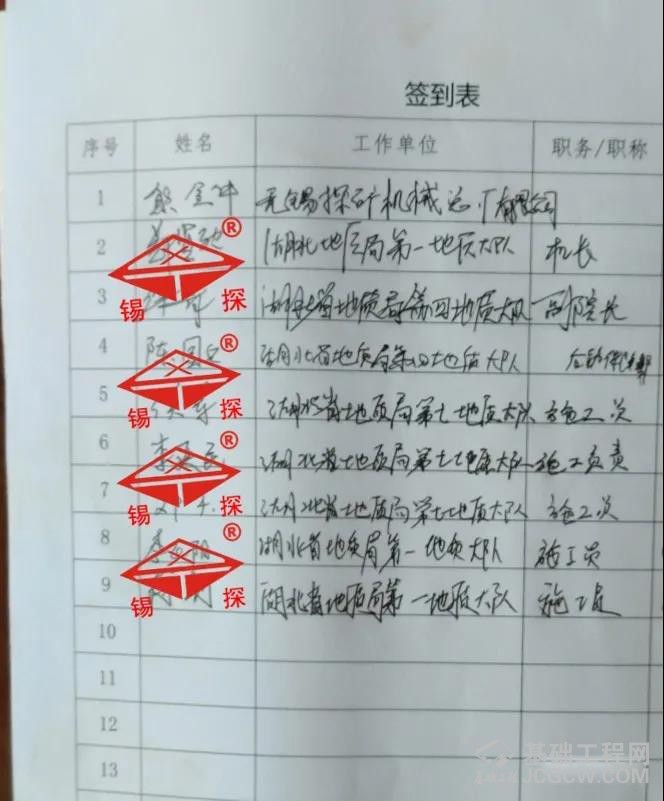 签到表
序号 姓名 工作单位 职务/职称
1 熊 无锡探矿机械总厂有限公司
2 湖北地质局第一地质大队 机长
3 湖北省地质局第四地质大队 副院长
4 陈 湖北省地质局第四地质大队
5 湖北省地质局第七地质大队 施工员
6 李 湖北省地质局第七地质大队 施工负责
7 湖北省地质局第七地质大队 施工员
8 李 阳 湖北省地质局第一地质大队 施工员
9 湖北省地质局第一地质大队 施工员
10
11
12
13
®
锡 探
®
锡 探
®
锡 探
®
锡 探
基础工程网
JCGCW.COM